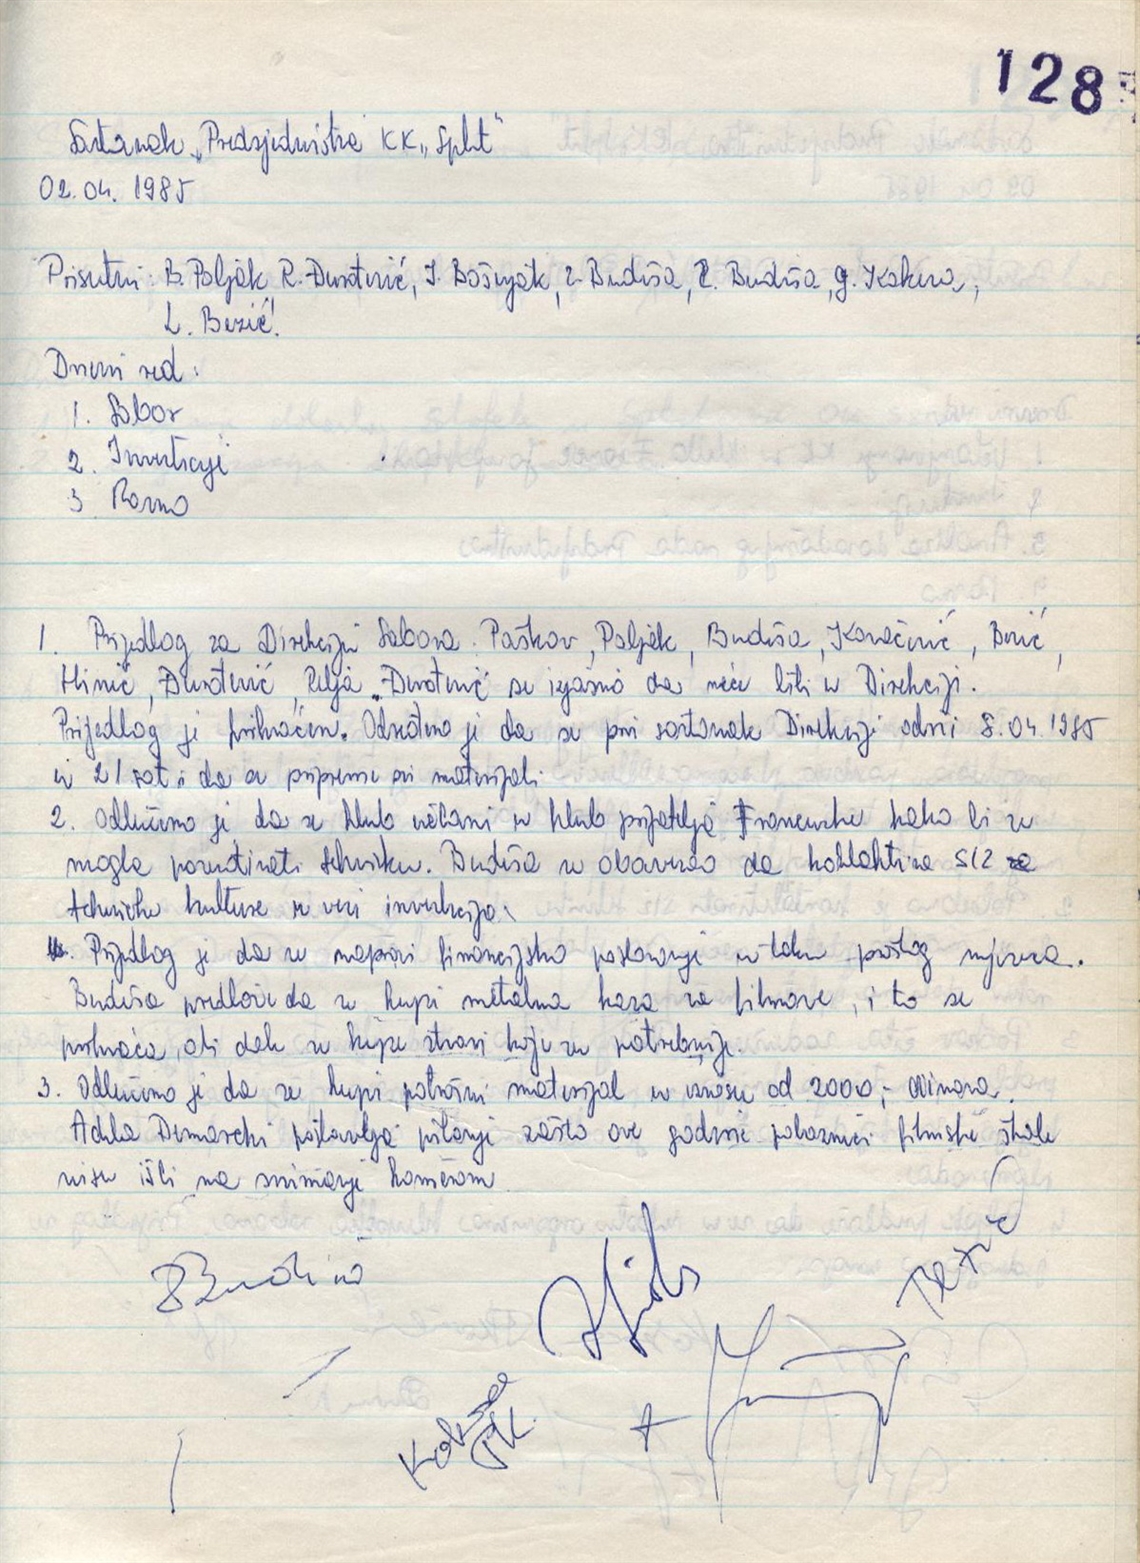 128
Sastanak „Predsjedništva KK „Split“
02.04. 1985
Prisutni: B. Poljak R. Đurđević, I. Bošnjak, Z. Budiša, Z. Budiša, G. Kokeza,
L. Bezić.
Dnevni red:
1. Sabor
2. Investicije
3 Razno
1. Prijedlog za Direkciju Sabora: Paškov, Poljak, Budiša, Kovačević,
da neće biti u Direkciji.
Prijedlog je prihvaćen. Određeno je da se prvi sastanak Direkcije održi 8.04.1985
u 21 sat i da se pripreme svi materijali.
2. Odlučeno je da se klub učlani u klub prijatelja kako bi se
mogla Budiša se obavezao da kontaktira SIZ za
tehničke kulture u vezi investicija.
Prijedlog je da se napravi financijsko poslovanje u toku prošlog mjeseca.
Budiša predlaže da se kupi metalna kasa za filmove, i to se
prihvaća, ali dok se kupe stvari koje su potrebnije.
3. Odlučeno je da se kupi potrošni materijal u iznosu od 2000,- dinara.
Demarchi postavlja pitanje zašto ove godine polaznici filmske škole
nisu išli na snimanje kamerom.
ZBudiša
Bezić
Kokeza